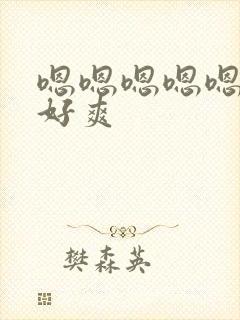 嗯嗯嗯嗯嗯
好爽
樊森英